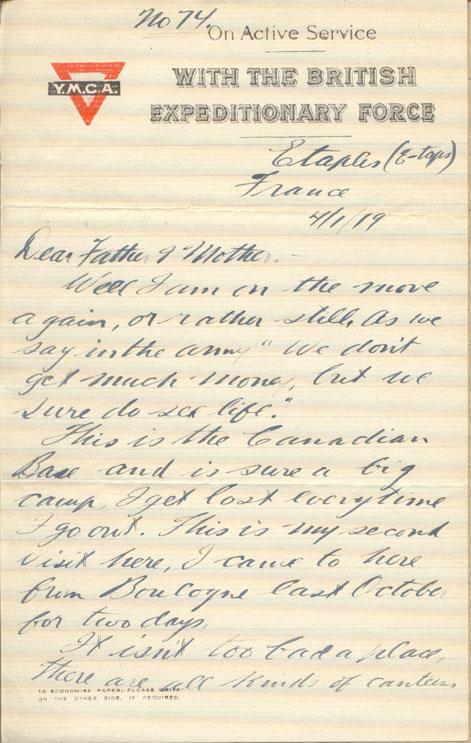 No 74.
On Active Service
Y.M.C.A.
WITH THE BRITISH
EXPEDITIONARY FORCE
Etaples (E-taps)
France
4/1/19
Dear Father & Mother.-
Well I am on the move
again, or rather still, As we
say in the army "We don't
get much money, but we
sure do see life."
This is the Canadian
Base and is sure a big
camp, I get lost everytime
I go out. This is my second
visit here, I came to here
from Boulogne last October
for two days.
It isn't too bad a place,
there are all kinds of canteens
TO ECONOMISE PAPER, PLEASE WRITE
ON THE OTHER SIDE, IF REQUIRED.